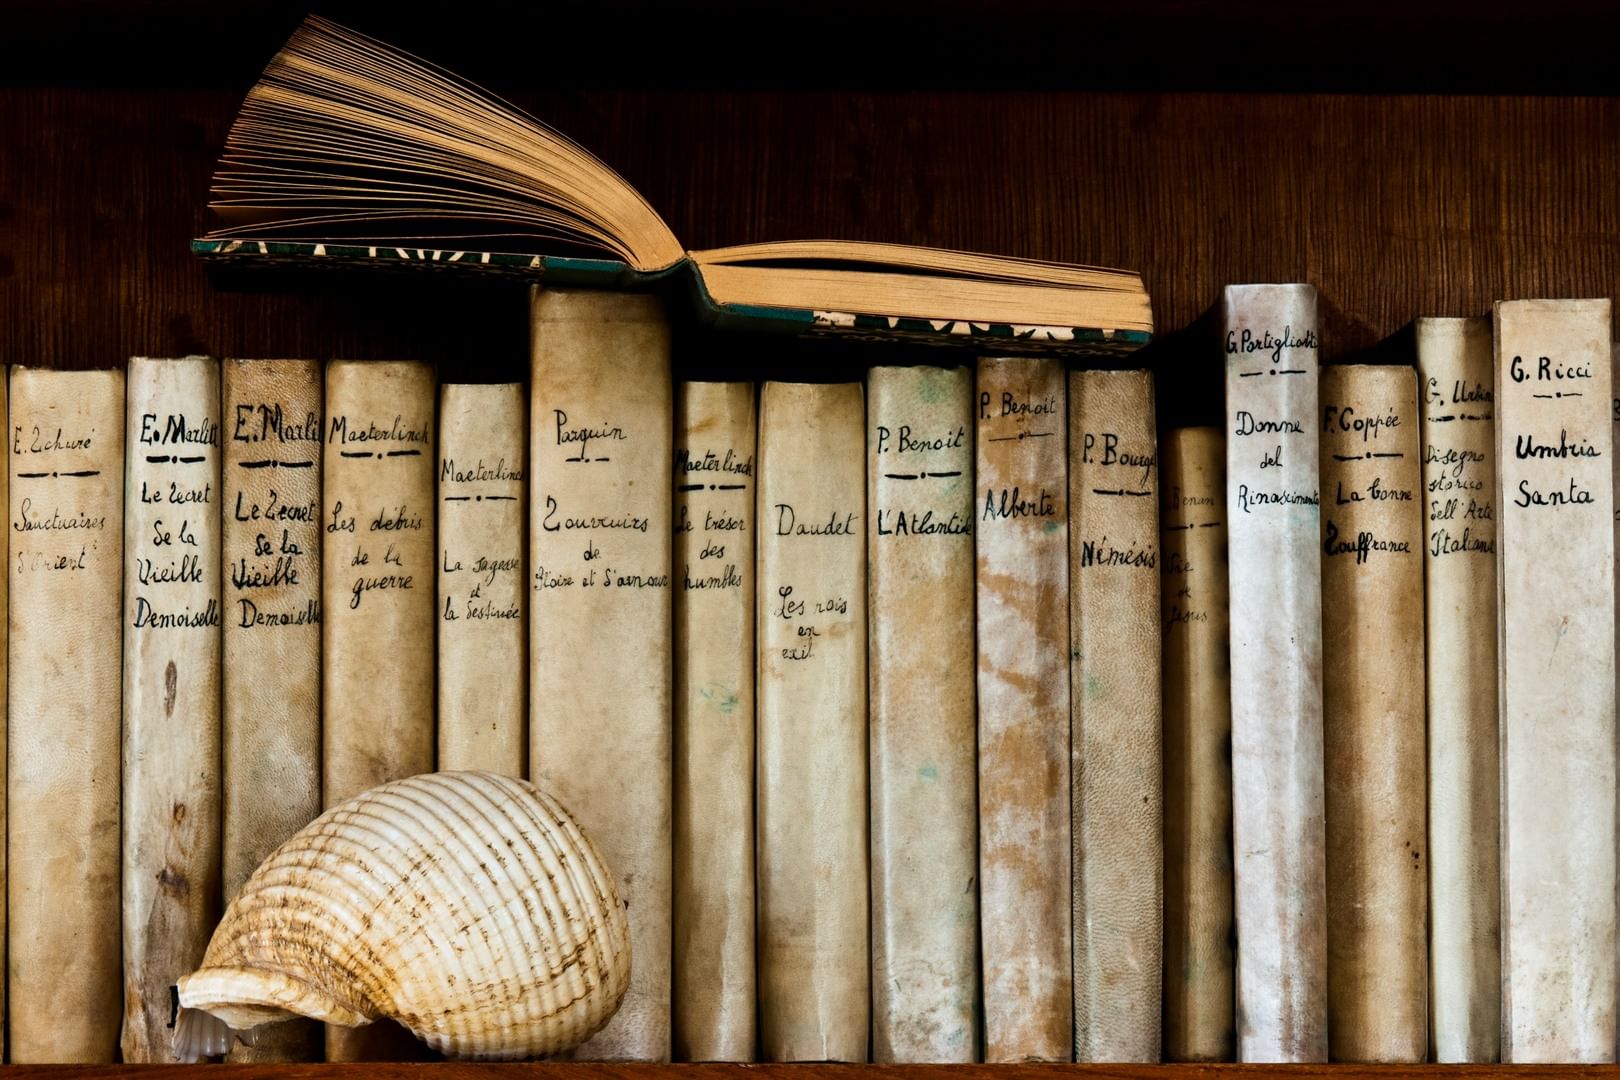 E. Schuré
Sanctuaires
d'Orient
E. Marlitt
Le Secret
de la
Vieille
Demoiselle
E. Marli
Le Secret
de la
Vieille
Demoiselle
Maeterlinck
Les débris
de la
guerre
Maeterlinck
La sagesse
et
la destinée
Parquin
Souvenirs
de
Gloire et d'amour
Maeterlinck
Le trésor
des
humbles
Daudet
Les rois
en
exil
P. Benoit
L'Atlantide
P. Benoit
Alberte
P. Bourget
Némésis
Renan
Vie
de
Jésus
G. Portigliotti
Donne
del
Rinascimento
F. Coppée
La bonne
Souffrance
G. Urbini
Disegno
storico
dell'Arte
Italiana
G. Ricci
Umbria
Santa